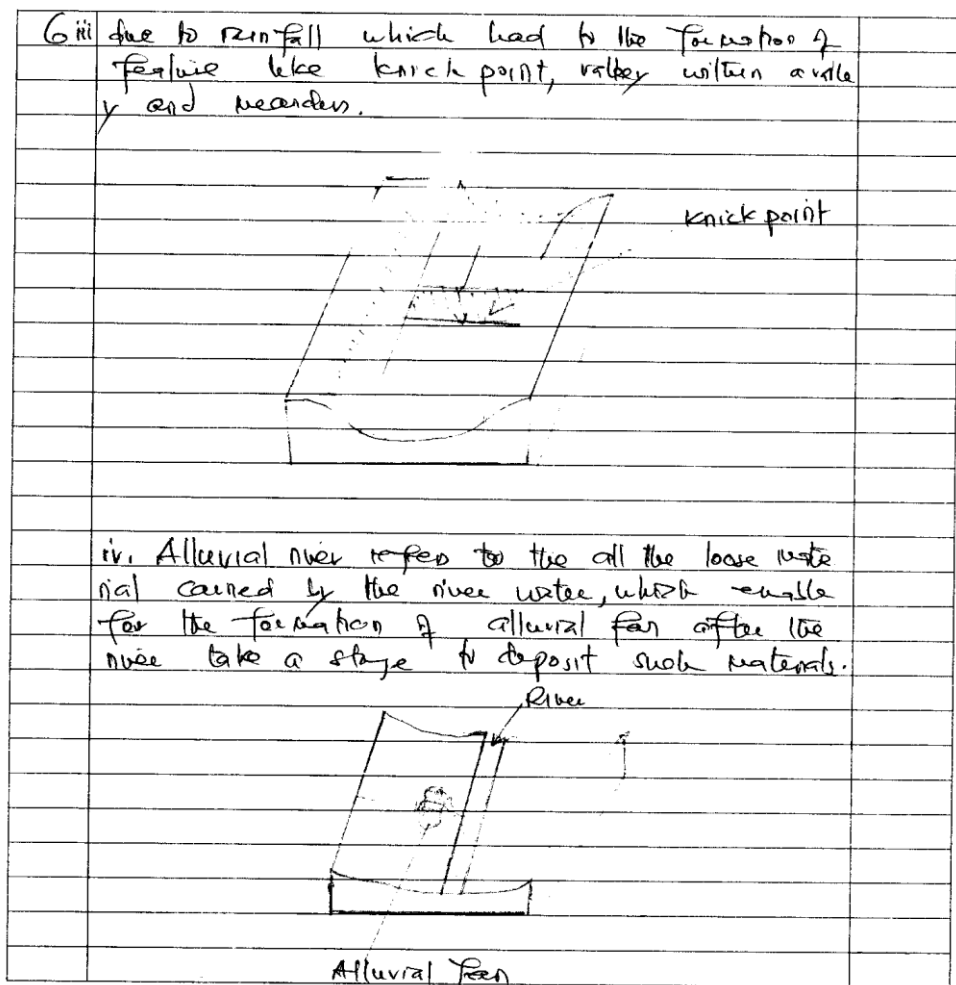 6 iii due to rainfall which had to the formation of
feature like knick point, valley within a valle
y and meanders.
knick point
iv. Alluvial river refers to the all the loose mate
rial carried by the river water, which enable
for the formation of alluvial fan after the
river take a stage to deposit such materials.
River
Alluvial Fan